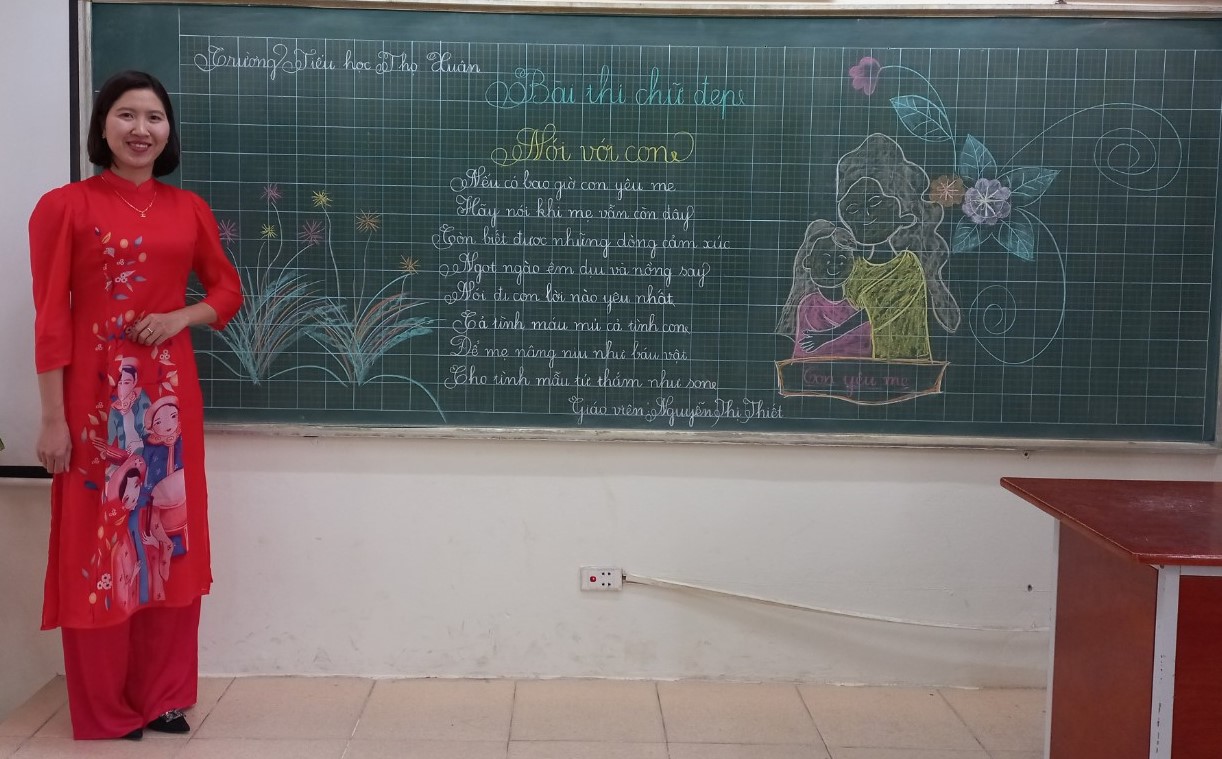 Trường Tiểu học Thọ Xuân
Bài thi chữ đẹp
Nói với con
Nếu có bao giờ con yêu mẹ
Hãy nói khi mẹ vẫn còn đây
Còn biết được những dòng cảm xúc
Ngọt ngào êm dịu và nồng say
Nói đi con lời nào yêu nhất
Cả tình máu mủ cả tình con
Để mẹ nâng niu như báu vật
Cho tình mẫu tử thắm như son
Giáo viên: Nguyễn Thị Thiết
Con yêu mẹ